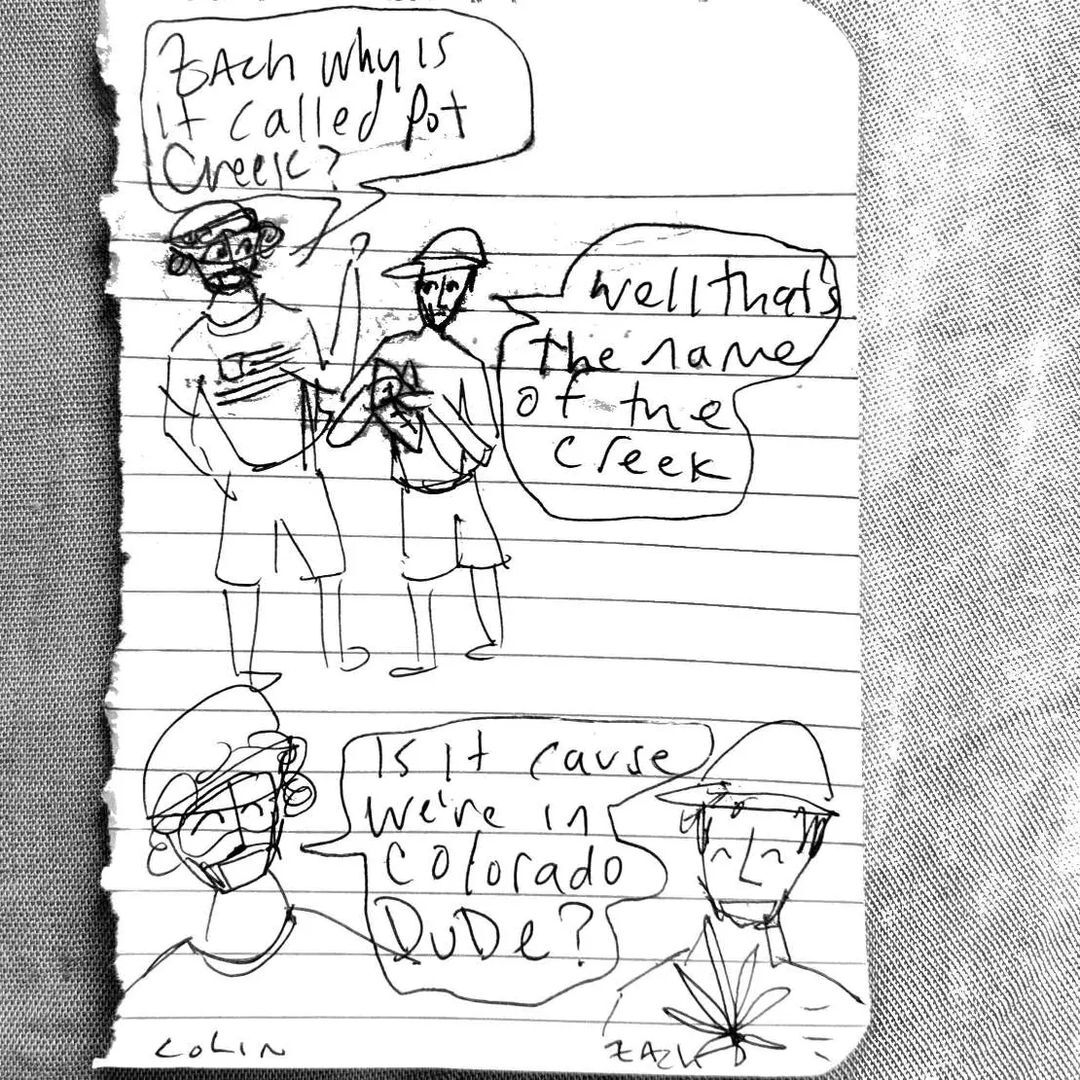 ZACh why is
it called pot
Creek?
well that's
the name
of the
creek
Is it cause
we're in
Colorado
DuDe?
COLIN
ZACH